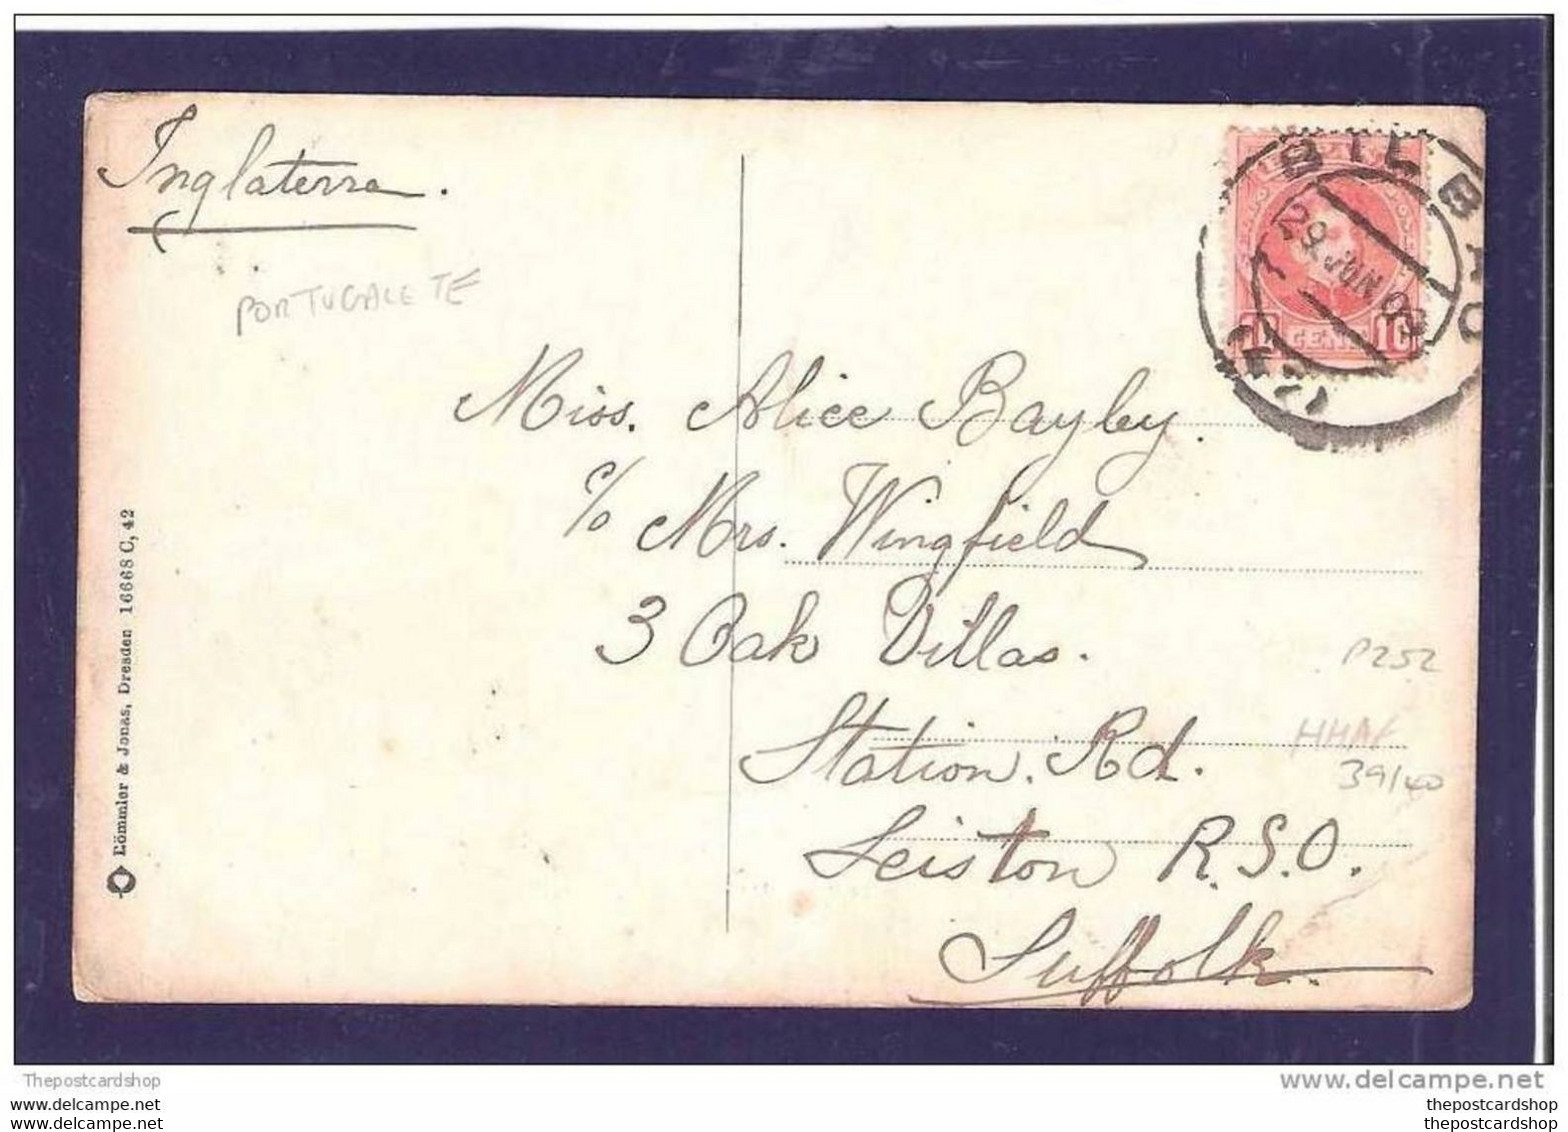 Inglaterra.
PORTUGALETE
BILBAO
29 JUN 09
10 CENT 10
Miss. Alice Bayley.
c/o Mrs. Wingfield
3 Oak Villas.
Station. Rd.
Leiston R.S.O.
Suffolk.
P252
39/40
Römmler & Jonas, Dresden 16668 C, 42
Thepostcardshop
www.delcampe.net
thepostcardshop
thepostcardshop
thepostcardshop
thepostcardshop